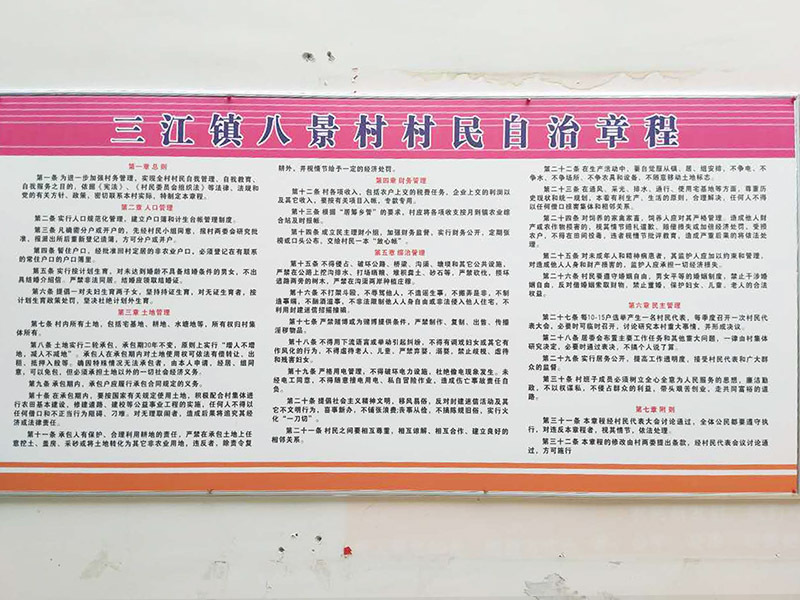 三江镇八景村村民自治章程
第一章 总则
第一条 为进一步加强村务管理，实现全村村民自我管理、自我教育、
自我服务之目的，依据《宪法》、《村民委员会组织法》等法律、法规和
党的有关方针、政策，密切联系本村实际，特制定本章程。
第二章 人口管理
第二条 实行人口规范化管理，建立户口簿和计生台帐管理制度。
第三条 凡确需分户或开户的，先经村民小组同意，报村两委会研究批
准，报派出所后重新登记造簿，方可分户或开户。
第四条 暂住户口，经批准回村定居的非农业户口，必须登记在有联系
的常住户口的户口簿里。
第五条 实行按计划生育，对未达到婚龄不具备结婚条件的男女，不出
具结婚介绍信。严禁非法同居，结婚应领取结婚证。
第六条 提倡一对夫妇生育两子女，坚持持证生育，对无证生育者，按
计划生育政策处罚，坚决杜绝计划外生育。
第三章 土地管理
第七条 村内所有土地，包括宅基地、耕地、水塘地等，所有权归村集
体所有。
第八条 土地实行二轮承包，承包期30年不变，原则上实行“增人不增
地，减人不减地”。承包人在承包期内对土地使用权可依法有偿转让，出
租，抵押入股等。确因特殊情况无法承包者，由本人申请，经居、组同
意，可以免包，但必须承担土地以外的一切社会经济义务
第九条 承包期内，承包户应履行承包合同规定的义务。
第十条 在承包期内，要按国家有关规定使用土地，积极配合村集体进
行农田基本建设，修建道路、建校等公益事业工程的实施，任何人不得以
任何借口和不正当行为阻碍、刁难。对无理取闹者，造成后果将追究其经
济或法律责任。
第十一条 承包人有保护、合理利用耕地的责任，严禁在承包土地上任
意挖土、盖房、采砂或将土地转化为其它非农业用地，违反者，除责令复
耕外，并视情节给予一定的经济处罚。
第四章 财务管理
第十二条 村各项收入，包括农户上交的税费任务，企业上交的利润以
及其它收入，要按有关项目入帐，专款专用。
第十三条 根据“居筹乡管”的要求，村应将各项收支按月到镇农业综
合站及时报帐。
第十四条 成立民主理财小组，加强财务监督，实行财务公开，定期张
榜或口头公布，交给村民一本“放心帐”。
第五章 综治管理
第十五条 不得侵占、破坏公路、桥梁、沟涵、塘坝和其它公共设施，
严禁在公路上挖沟排水、打场晒粮、堆积粪土、砂石等，严禁砍伐，损坏
道路两旁的树木，严禁在沟渠两岸种植庄稼。
第十六条 不打架斗殴，不辱骂他人，不造谣生事，不搬弄是非，不制
造事端，不酗酒滋事，不非法限制他人人身自由或非法侵入他人住宅，不
利用封建迷信招摇撞骗。
第十七条 严禁赌博或为赌博提供条件，严禁制作、复制、出售、传播
淫秽物品。
第十八条 不得用下流语言或举动引起纠纷，不得有调戏妇女或其它有
作风化的行为，不得虐待老人、儿童，严禁弃婴，溺婴，禁止歧视、虐待
和残害妇女。
第十九条 严格用电管理，不得破坏电力设施，杜绝偷电现象发生。未
经电工同意，不得随意接电用电、私自管险作业，造成伤亡事故责任自
负。
第二十条 提倡社会主义精神文明，移风易俗，反对封建迷信活动及其
它不文明行为，喜事新办，不铺张浪费；丧事从俭，不搞陈规旧俗，实行火
化“一刀切”。
第二十一条 村民之间要相互尊重，相互谅解、相互合作、建立良好的
相邻关系。
第二十二条 在生产活动中，要自觉服从镇、居、组安排，不争电、不
争水、不争场所、不争农具和设备，不随意移动土地标志。
第二十三条 在通风、采光、排水、通行、使用宅基地等方面，尊重历
史现状和统一规划，本着有利生产、生活的原则，合理解决，任何人不得
以任何借口损害集体和相邻关系。
第二十四条 对饲养的家禽家畜，饲养人应对其严格管理。造成他人财
产或农作物损害的，视其情节赔礼道歉，赔偿损失或加倍经济处罚，受损
农户，不得在田间投毒，违者视情节批评教育，造成严重后果的将依法处
理。
第二十五条 对未成年人和精神病患者，其监护人应加以约束和管理，
对造成他人人身和财产损害的，监护人应承担一切经济损失。
第二十六条 村民要遵守婚姻自由、男女平等的婚姻制度，禁止干涉婚
姻自由，反对借婚姻索取财物，禁止重婚，保护妇女、儿童、老人的合法
权益。
第六章 民主管理
第二十七条 每10-15户选举产生一名村民代表，每季度召开一次村民代
表大会，必要时可临时召开，讨论研究本村重大事情，并形成决议。
第二十八条 居委会布置主要工作任务和其他重大问题，一律由村集体
研究决定，必要时通过表决，不搞个人说了算。
第二十九条 实行居务公开，提高工作透明度，接受村民代表和广大群
众的监督。
第三十条 村班子成员必须树立全心全意为人民服务的思想，廉洁勤
政，不以权谋私，不侵占群众的利益，带头艰苦创业，走共同富裕的道
路。
第七章 附则
第三十一条 本章程经村民代表大会讨论通过，全体公民都要遵守执
行，对违反本章程者，视其情节，依法处理。
第三十二条 本章程的修改由村两委提出条款，经村民代表会议讨论通
过，方可施行